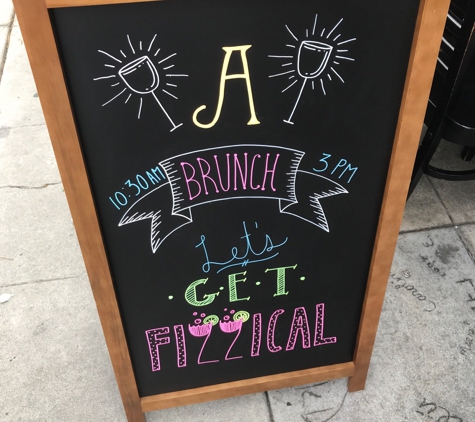 A
10:30AM BRUNCH 3 PM
Let's
G·E·T
FIZZICAL